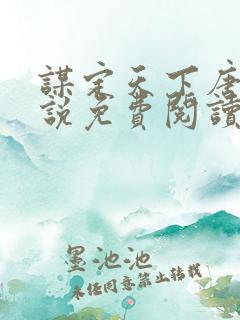 謀定天下唐
說免費閱讀
墨池池
未经同意禁止转载